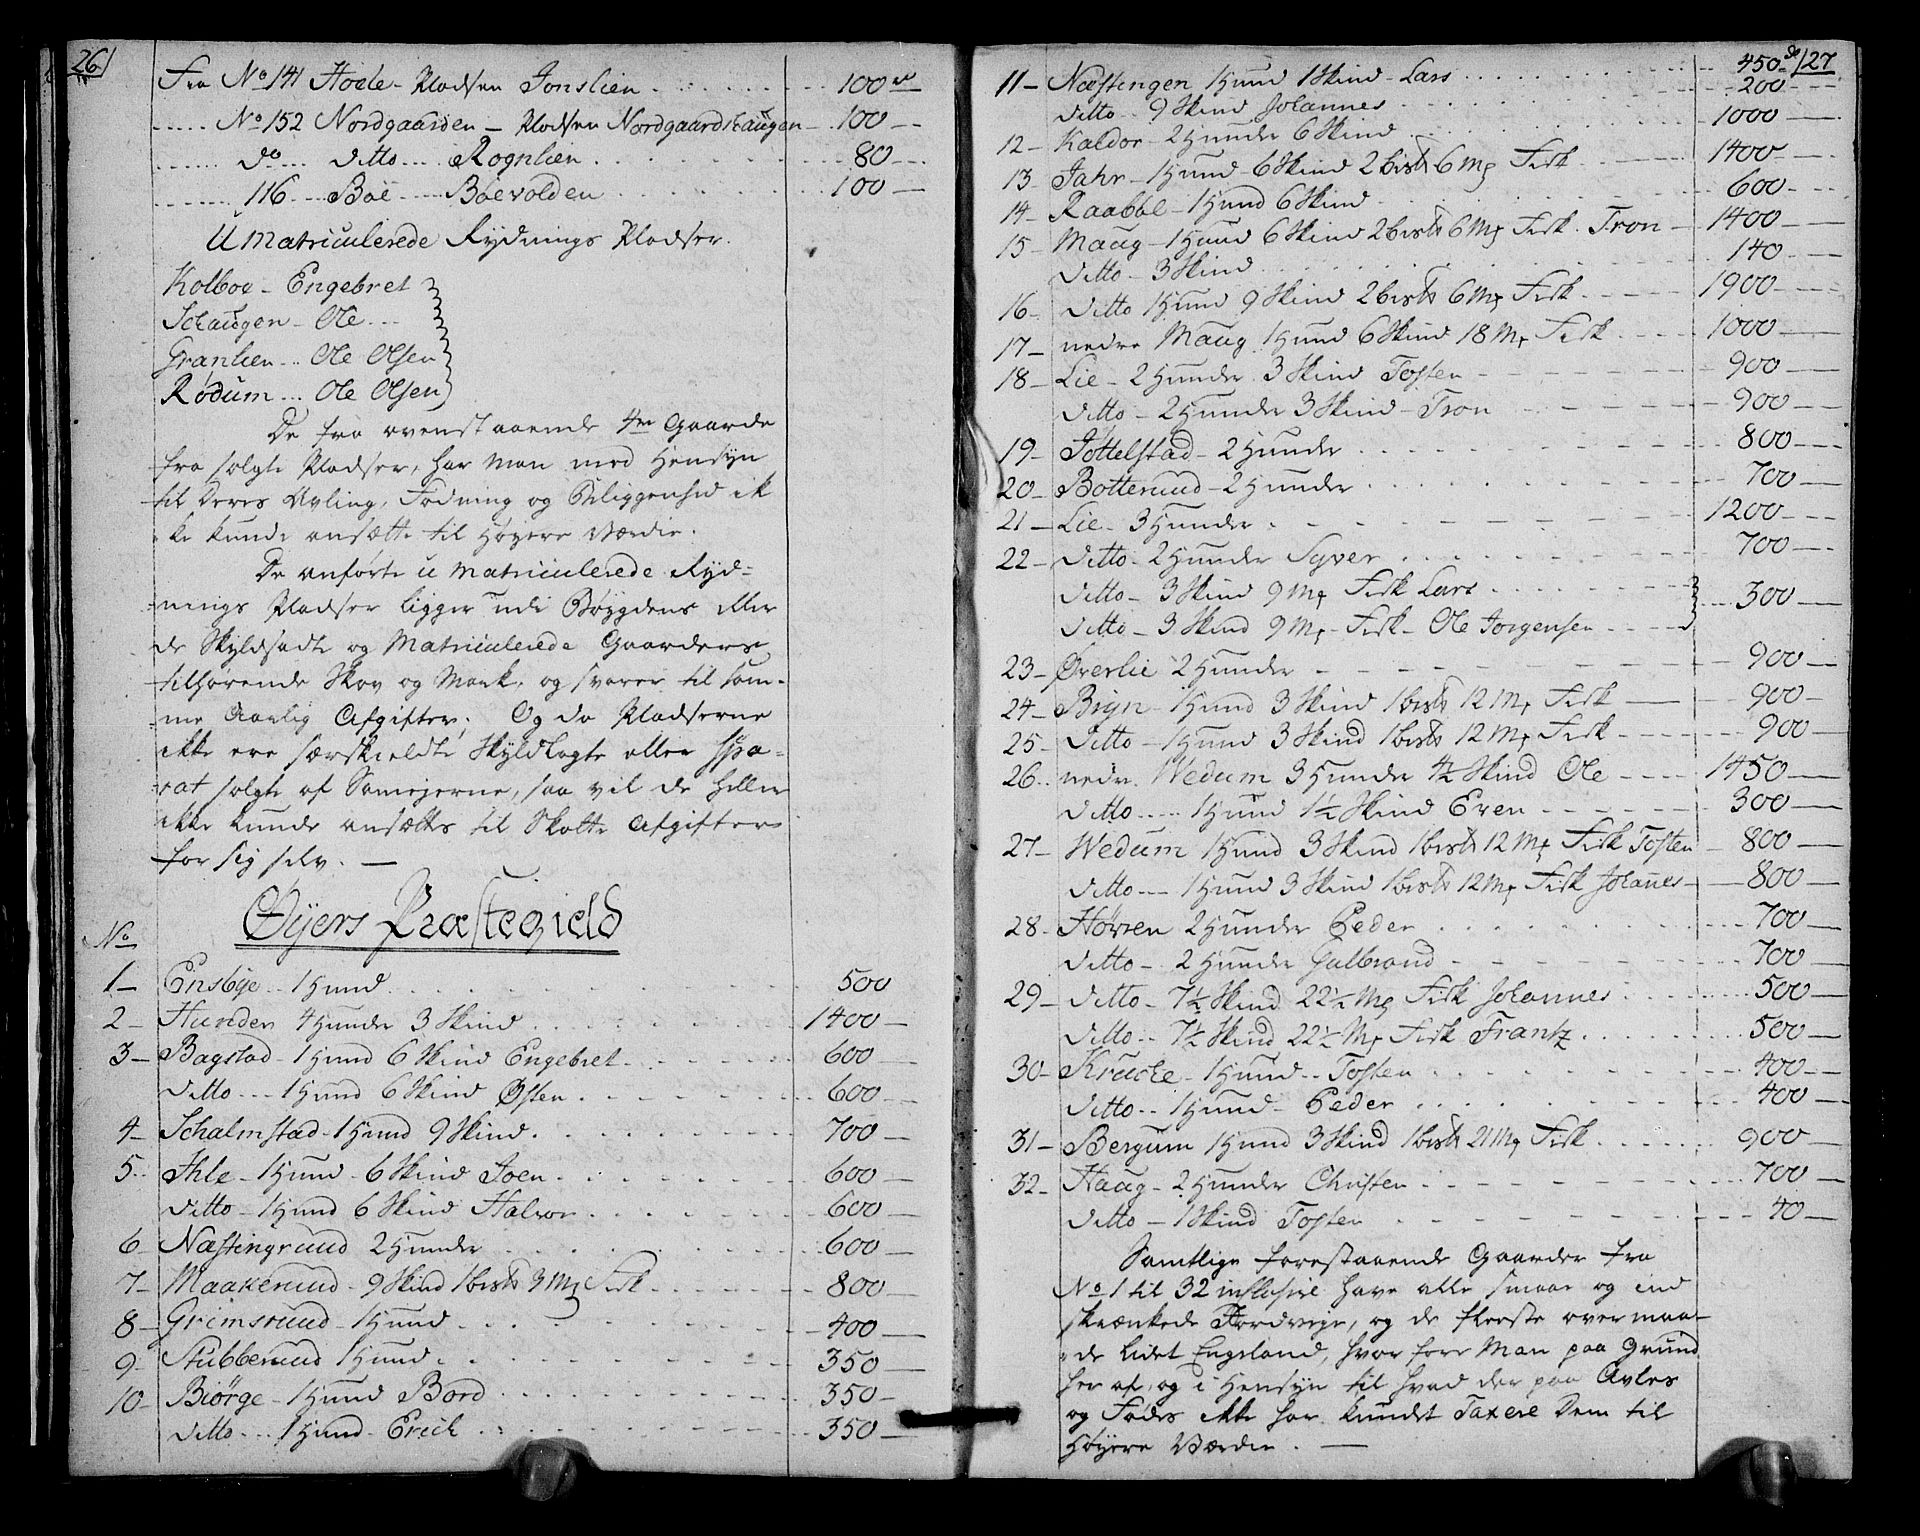 26
Fra No 141 Hoele - Pladsen Jonslien 100 rd
No 152 Nordgaarden - Pladsen Nordgaardshaugen 100
do ditto Rognlien 80
116 Böe Böevolden 100
U Matriculerede Rydnings Pladser.
Kolboe - Engebret
Schaugen - Ole
Granlien Ole Olsen
Rødum Ole Olsen
De fra ovenstaaende 4re Gaarde
fra solgte Pladser, har man med Hensyn
til deres Avling, Fødning og Beliggenhed ik
ke kunde ansætte til høyere Værdie.
De anførte u Matriculerede Ryd-
nings Pladser ligger udi Bøygdens eller
de Skyldsadte og Matriculerede Gaarders
tilhørende Skov og Mark, og svarer til sam-
me Aarlig Afgifter; Og da Pladserne
ikke ere særskieldte Skyldlagte eller sepa-
rat solgte af Samejerne, saa vil de heller
ikke kunde ansættes til Skatte Afgifter
for sig selv. —
Øyers Præstegield
No
1 - Ensbye - 1 Hund 500
2 - Hunder 4 Hunder 3 Skind 1400
3 - Bagstad - 1 Hund 6 Skind Engebret 600
ditto - 1 Hund 6 Skind Østen 600
4 - Schalmstad - 1 Hund 9 Skind 700
5 Ihle - 1 Hund - 6 Skind Joen 600
ditto - 1 Hund 6 Skind Halvor 600
6 - Næstingruud 2 Hunder 600
7 - Maakeruud - 9 Skind 1 bisk 3 Mk Fisk 800
8 - Grimsruud - 1 Hund 400
9 - Stubberuud 1 Hund 350
10 - Biörge - 1 Hund Bord 350
ditto 1 Hund - Erich 350
27
11 - Næstingen 1 Hund 1 Skind - Lars 450 rd
ditto 9 Skind Johannes 200
12 - Kaldor - 2 Hunder 6 Skind 1000
13 - Jahr - 1 Hund 6 Skind 2 bisk 6 Mk Fisk 1400
14 - Raabbel - 1 Hund 6 Skind 600
15 - Maug - 1 Hund 6 Skind 2 bisk 6 Mk Fisk - Tron 1400
ditto - 3 Skind 140
16 - ditto 1 Hund 9 Skind 2 bisk 6 Mk Fisk 1900
17 - nedre Maug 1 Hund 6 Skind 18 Mk Fisk 1000
18 - Lie - 2 Hunder 3 Skind Tosten 900
ditto - 2 Hunder 3 Skind - Tron 900
19 - Jöttelstad - 2 Hunder 800
20 - Botteruud - 2 Hunder 700
21 - Lie - 3 Hunder 1200
22 - ditto - 2 Hunder Syver 700
ditto - 3 Skind 9 Mk Fisk Lars
ditto - 3 Skind 9 Mk - Fisk - Ole Jorgensen 300
23 - Øverlie 2 Hunder 900
24 - Bryn - 1 Hund 3 Skind 1 bisk 12 Mk Fisk 900
25 - Ditto - 1 Hund 3 Skind 1 bisk 12 Mk Fisk 900
26 nedr. Wedum 3 Hunder 4½ Skind Ole 1450
ditto 1 Hund 1½ Skind Even 300
27 - Wedum 1 Hund 3 Skind 1 bisk 12 Mk Fisk Tosten 800
ditto 1 Hund 3 Skind 1 bisk 12 Mk Fisk Johanes 800
28 - Hovren 2 Hunder Peder 700
ditto - 2 Hunder Gulbrand 700
29 - ditto - 7½ Skind 22½ Mk Fisk Johannes 500
ditto 7½ Skind 22½ Mk Fisk Frantz 500
30 - Krucke - 1 Hund Tosten 400
ditto 1 Hund - Peder 400
31 - Bergum 1 Hund 3 Skind 1 bisk 21 Mk Fisk 900
32 - Haug - 2 Hunder Christen 700
ditto - 1 Skind Tosten 40
Samtlige forestaaende Gaarder fra
No 1 til 32 inclusive have alle smaa og ind
skrænkede Jordveje, og de fleeste overmaa-
de lidet Engeland, hvor fore Man paa Grund
her af, og i Hensyn til hvad der paa Avles
og Fødes ikke har kundet Taxere dem til
høyere Værdie. —